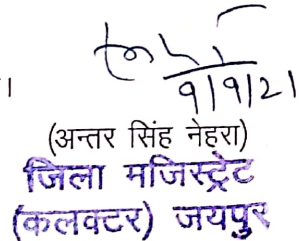 ।
9/9/21
(अन्तर सिंह नेहरा)
जिला मजिस्ट्रेट
(कलक्टर) जयपुर